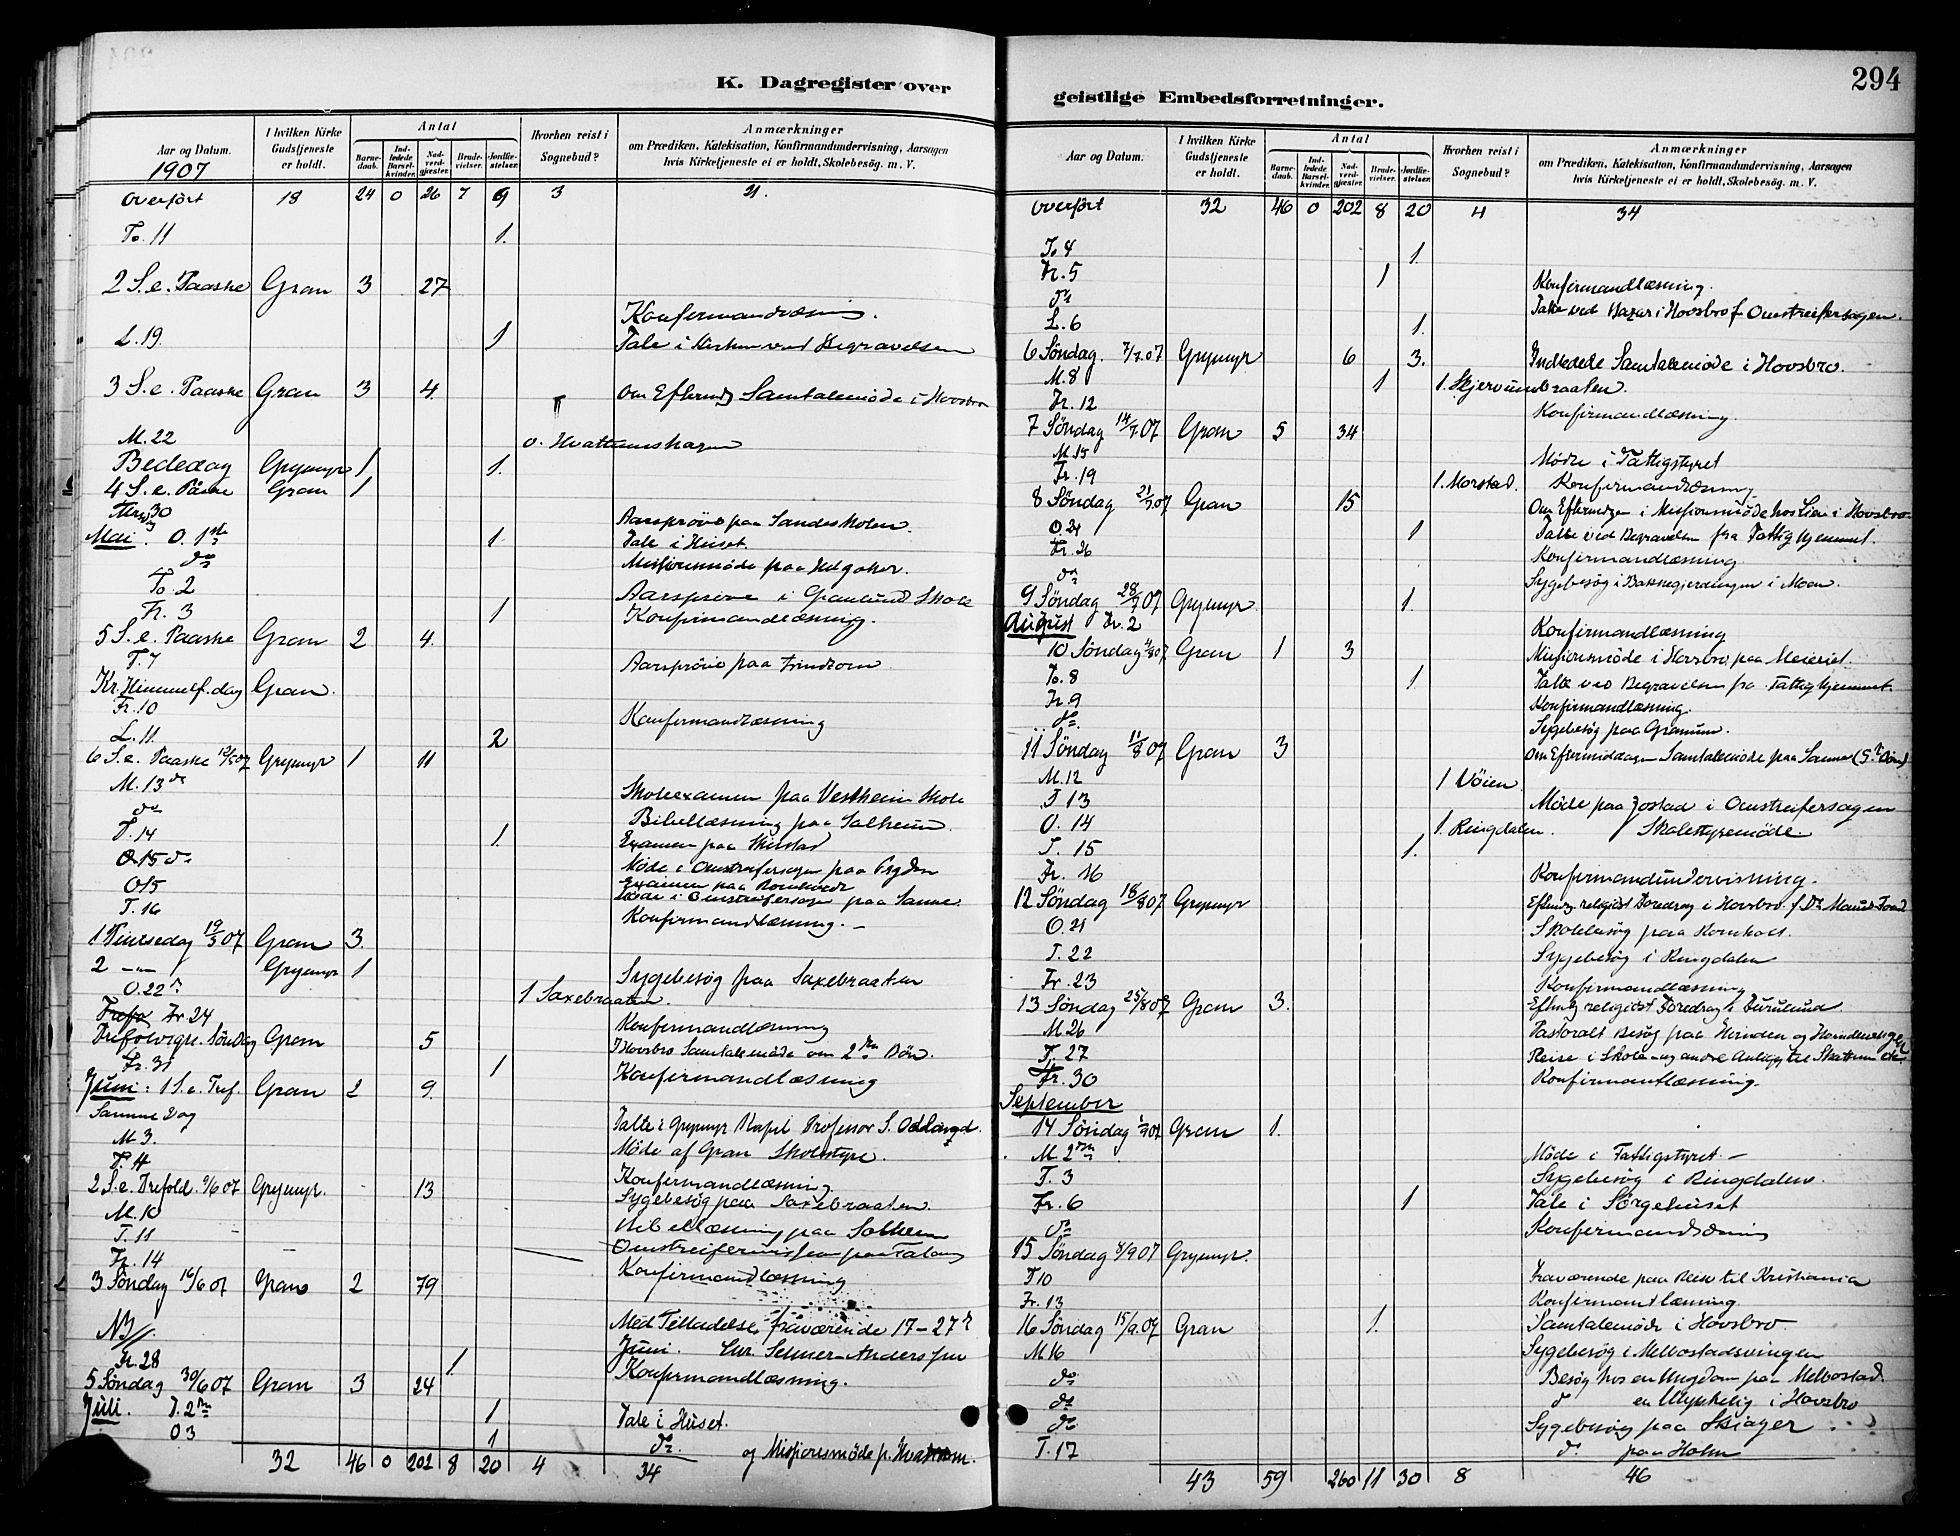 K. Dagregister over
Aar og Datum.
1907
I hvilken Kirke Gudstjeneste er holdt.
Antal
Barnedaab.
Indledede Barselkvinder.
Nadverdgjester.
Brudevielser.
Jordfæstelser.
Hvorhen reist i Sognebud?
Anmærkninger
om Prædiken, Katekisation, Konfirmandundervisning, Aarsagen
hvis Kirketjeneste ei er holdt, Skolebesøg. m. V.
Overført 18 24 0 26 7 9 3 21.
To. 11 1.
2 S. e. Paaske Gran 3 27
Konfirmandlæsning.
L. 19. 1 Tale i Kirken ved Begravelsen
3 S. e. Paaske Gran 3 4. Om Efterm Samtalemøde i Hovsbro
M. 22 o. Hvattumshagen
Bededag Grymyr 1 1.
4 S. e. Paaske Gran 1
30 Aarsprøve paa Sandeskolen.
Mai. O. 1ste 1. Tale i Huset.
do Missionsmøde paa Helgaker.
To. 2 Aarsprøve i Granlund Skole
Fr. 3 1 Konfirmandlæsning.
5 S. e. Paaske Gran 2 4.
T. 7 Aarsprøve paa
Kr. Himmelf. dag Gran.
Fr. 10 Konfirmandlæsning
L. 11. 2
6 S. e. Paaske 12/5 07 Grymyr 1 11
M. 13de Skoleexamen paa Vestheim Skole
do Bibellæsning paa Solheim.
T. 14 1. Examen paa
O 15 do Møde i Omstreifersagen paa
O15 Examen paa
T. 16 Møde i Omstreifersagen paa Sanne
Konfirmandlæsning. –
1 Pintsedag 19/5 07 Gran 3.
2 –"– Grymyr 1
O. 22 Sygebesøg paa Saxebraaten
1 Saxebraaten.
Fr. 24 Konfirmandlæsning
Trefoldighe. Søndag Gran 5 I Hovsbro Samtalemøde om 2den Bøn.
Fr. 31 1
Juni: 1 S. e. Tref. Gran 2 9. Konfirmandlæsning
Samme Dag Talte i Grymyr Kapel Professor S. Odland.
M. 3. Møde af Gran Skolestyre.
T. 4 Konfirmandlæsning
2 S. e. Trefold. 9/6 07 Grymyr. 13 Sygebesøg paa Saxebraaten.
M. 10 Bibellæsning paa Solheim
T. 11
Fr. 14 Konfirmandlæsning
3 Søndag 16/6 07 Gran 2 79
NB//. Med Tilladelse fraværende 17–27de
Juni. Chr. Selmer-Anderssen
Fr. 28 1. Konfirmandlæsning.
5 Søndag 30/6 07 Gran 3 24
Juli. T. 2den 1 Tale i Huset.
O 3 1 do og Missionsmøde p. Hvattum.
32 46 0 202 8 20 4 34
geistlige Embedsforretninger.
294
Aar og Datum.
I hvilken Kirke Gudstjeneste er holdt.
Antal
Barnedaab.
Indledede Barselkvinder.
Nadverdgjester.
Brudevielser.
Jordfæstelser.
Hvorhen reist i Sognebud?
Anmærkninger
om Prædiken, Katekisation, Konfirmandundervisning, Aarsagen
hvis Kirketjeneste ei er holdt, Skolebesøg. m. V.
Overført 32 46 0 202 8 20 4 34
To 4 1.
Fr. 5 1 Konfirmandlæsning.
do Talte ved Bazar i Hovsbro f Omstreifersagen.
L. 6 1.
6 Søndag. 7/7 07 Grymyr 6 3. Indledede Samtalemøde i Hovsbro.
M. 8 1 1. Skjervumbraaten.
Fr. 12 Konfirmandlæsning.
7 Søndag 14/7 07 Gran 5 34
M. 15 Møde i Fattigstyret
Fr. 19 1. Morstad. Konfirmandlæsning
8 Søndag 21/7 07 Gran 15 Om Eftermdgen i Missionsmøde hos Lien i Hovsbro
O 24 1 Talte ved Begravelsen fra Fattighjemmet.
Fr. 26 Konfirmandlæsning
do Sygebesøg i Bakkegjerdingen i Moen.
9 Søndag 28/7 07 Grymyr. 1.
August Fr. 2 Konfirmandlæsning
10 Søndag 4/8 07 Gran 1 3 Missionsmøde i Hovsbro paa Meieriet.
To. 8 1. Talte ved Begravelsen fra Fattighjemmet.
Fr. 9 Konfirmandlæsning.
do Sygebesøg paa Granum.
11 Søndag 11/8 07 Gran 3 Om Eftermiddagen Samtalemøde paa Sanne (5te Bøn)
M. 12 1 Vøien.
T 13 Møde paa Jostad i Omstreifersagen
O. 14 1. Ringdalen. Skolestyremøde.
T. 15 1.
Fr. 16 Konfirmandundervisning.
12 Søndag 18/8 07 Grymyr Efterm religiøst Foredrag i Hovsbro.
O. 21 Skolebesøg paa Kornholt.
T. 22 Sygebesøg i Ringdalen
Fr. 23 Konfirmandlæsning
13 Søndag 25/8 07 Gran 3. Efterm religiøst Foredrag i Furulund.
M. 26 Pastoralt Besøg paa
T. 27 Reise i Skole-
Fr. 30 Konfirmantlæsning.
September
14 Søndag 1/9 07 Gran 1.
M. 2den Møde i Fattigstyret. –
T. 3 Sygebesøg i Ringdalen.
Fr. 6 1 Tale i Sørgehuset
do Konfirmandlæsning
15 Søndag 8/9 07 Grymyr.
T 10 Fraværende paa Reise til Kristiania
Fr. 13 Konfirmantlæsning.
16 Søndag 15/9. 07 Gran 1. Samtalemøde i Hovsbro.
M. 16 Sygebesøg i Melbostadsvingen
do Besøg hos en Ungdom paa Melbostad.
do do en Ulykkelig i Hovsbro
do Sygebesøg paa Skiager
T. 17 do paa Holm
43 59 260 11 30 8 46